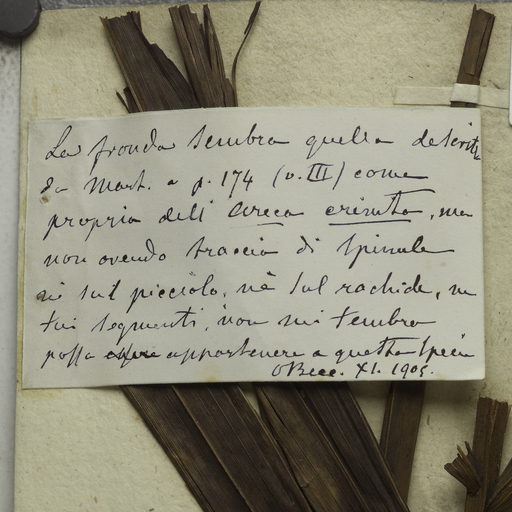 La fronda sembra quella descritta
da Mart. a p. 174 (v. III) come
propria dell' Areca crinita, ma
non avendo traccia di spinule
nè sul picciolo, nè sul rachide, ne
sui segmenti, non mi sembra
possa essere appartenere a questa specie
OBecc. XI. 1905.